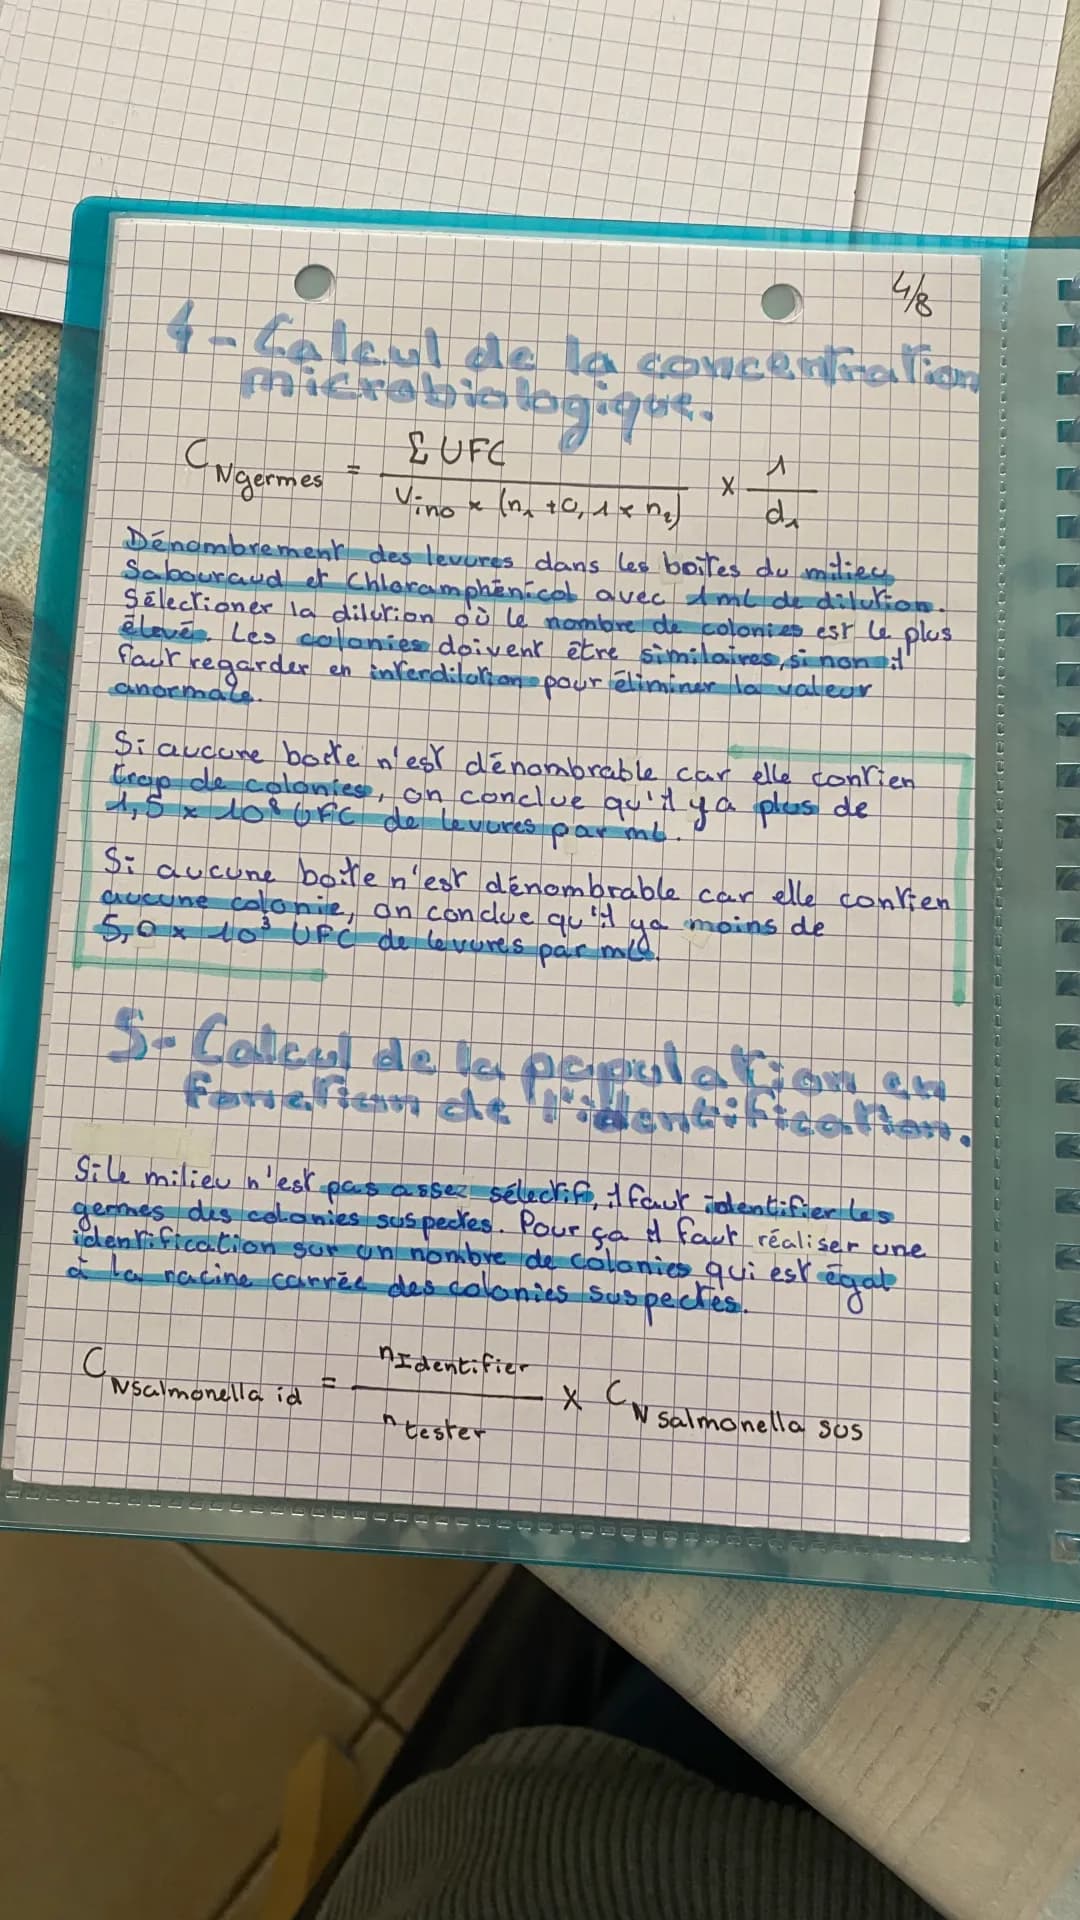 4/8
4 - Calcul de la concentration
microbiologique.
C Ngermes = Σ UFC / Vino × (n1 + 0,1 × n2) × 1 / d1
Dénombrement des levures dans les boites du milieu
Sabouraud et Chloramphénicol avec 1mL de dilution.
Sélectioner la dilution où le nombre de colonies est le plus
élevé. Les colonies doivent être similaires, si non il
faut regarder en interdilution pour éliminer la valeur
anormale.
Si aucune boite n'est dénombrable car elle contien
trop de colonies, on conclue qu'il y a plus de
1,5 × 10⁸ UFC de levures par mL.
Si aucune boite n'est dénombrable car elle contien
aucune colonie, on conclue qu'il ya moins de
5,0 × 10³ UFC de levures par mL.
5- Calcul de la population en
fonction de l'identification.
Si le milieu n'est pas assez sélectif, il faut identifier les
germes des colonies suspectes. Pour ça il faut réaliser une
identification sur un nombre de colonies qui est égal
à la racine carrée des colonies suspectes.
C Nsalmonella id = n Identifier / n tester × C N salmonella sus